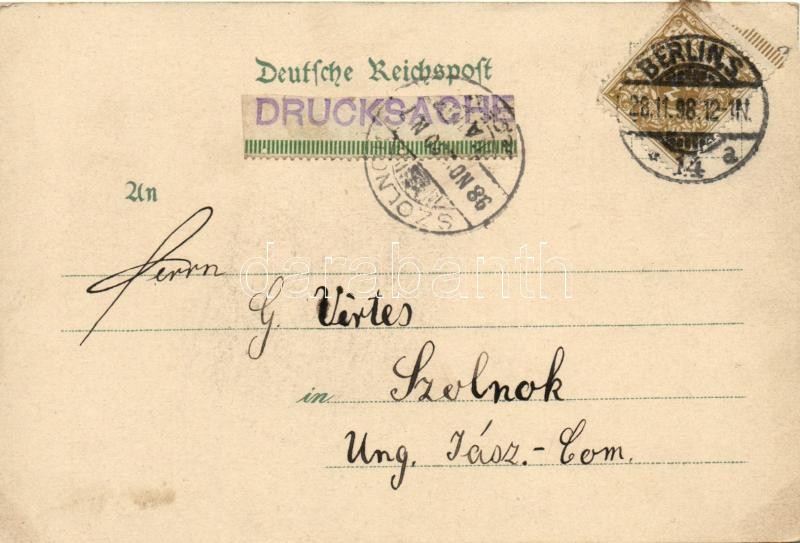 Deutsche Reichspost
DRUCKSACHE
BERLIN.S.
28.11.98.12-1N.
14 a
SZOLNOK
98 NO
An
Herrn
G. Vértes
in Szolnok
Ung. Jász.-Com.
darabanth